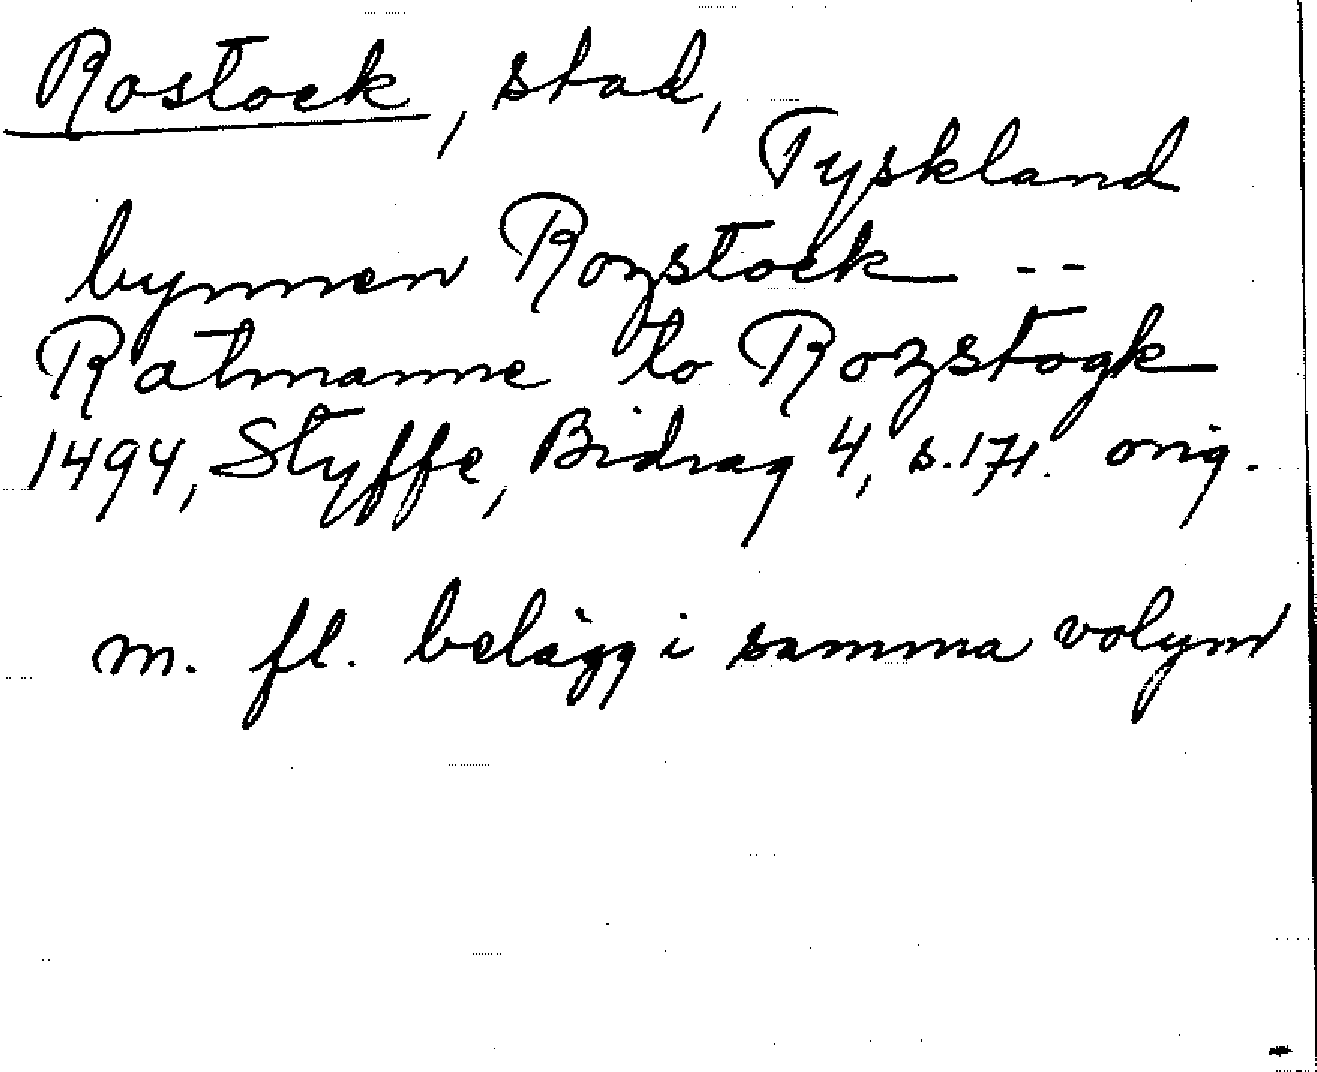 Rostock, stad,
Tyskland
bynnen Rozstock --
Ratmanne to Rozstogk
1494, Styffe, Bidrag 4, s. 171. orig.
m. fl. belägg i samma volym